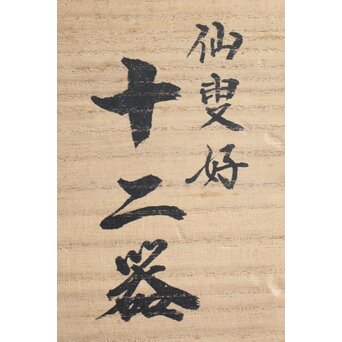 仙叟好
十二器